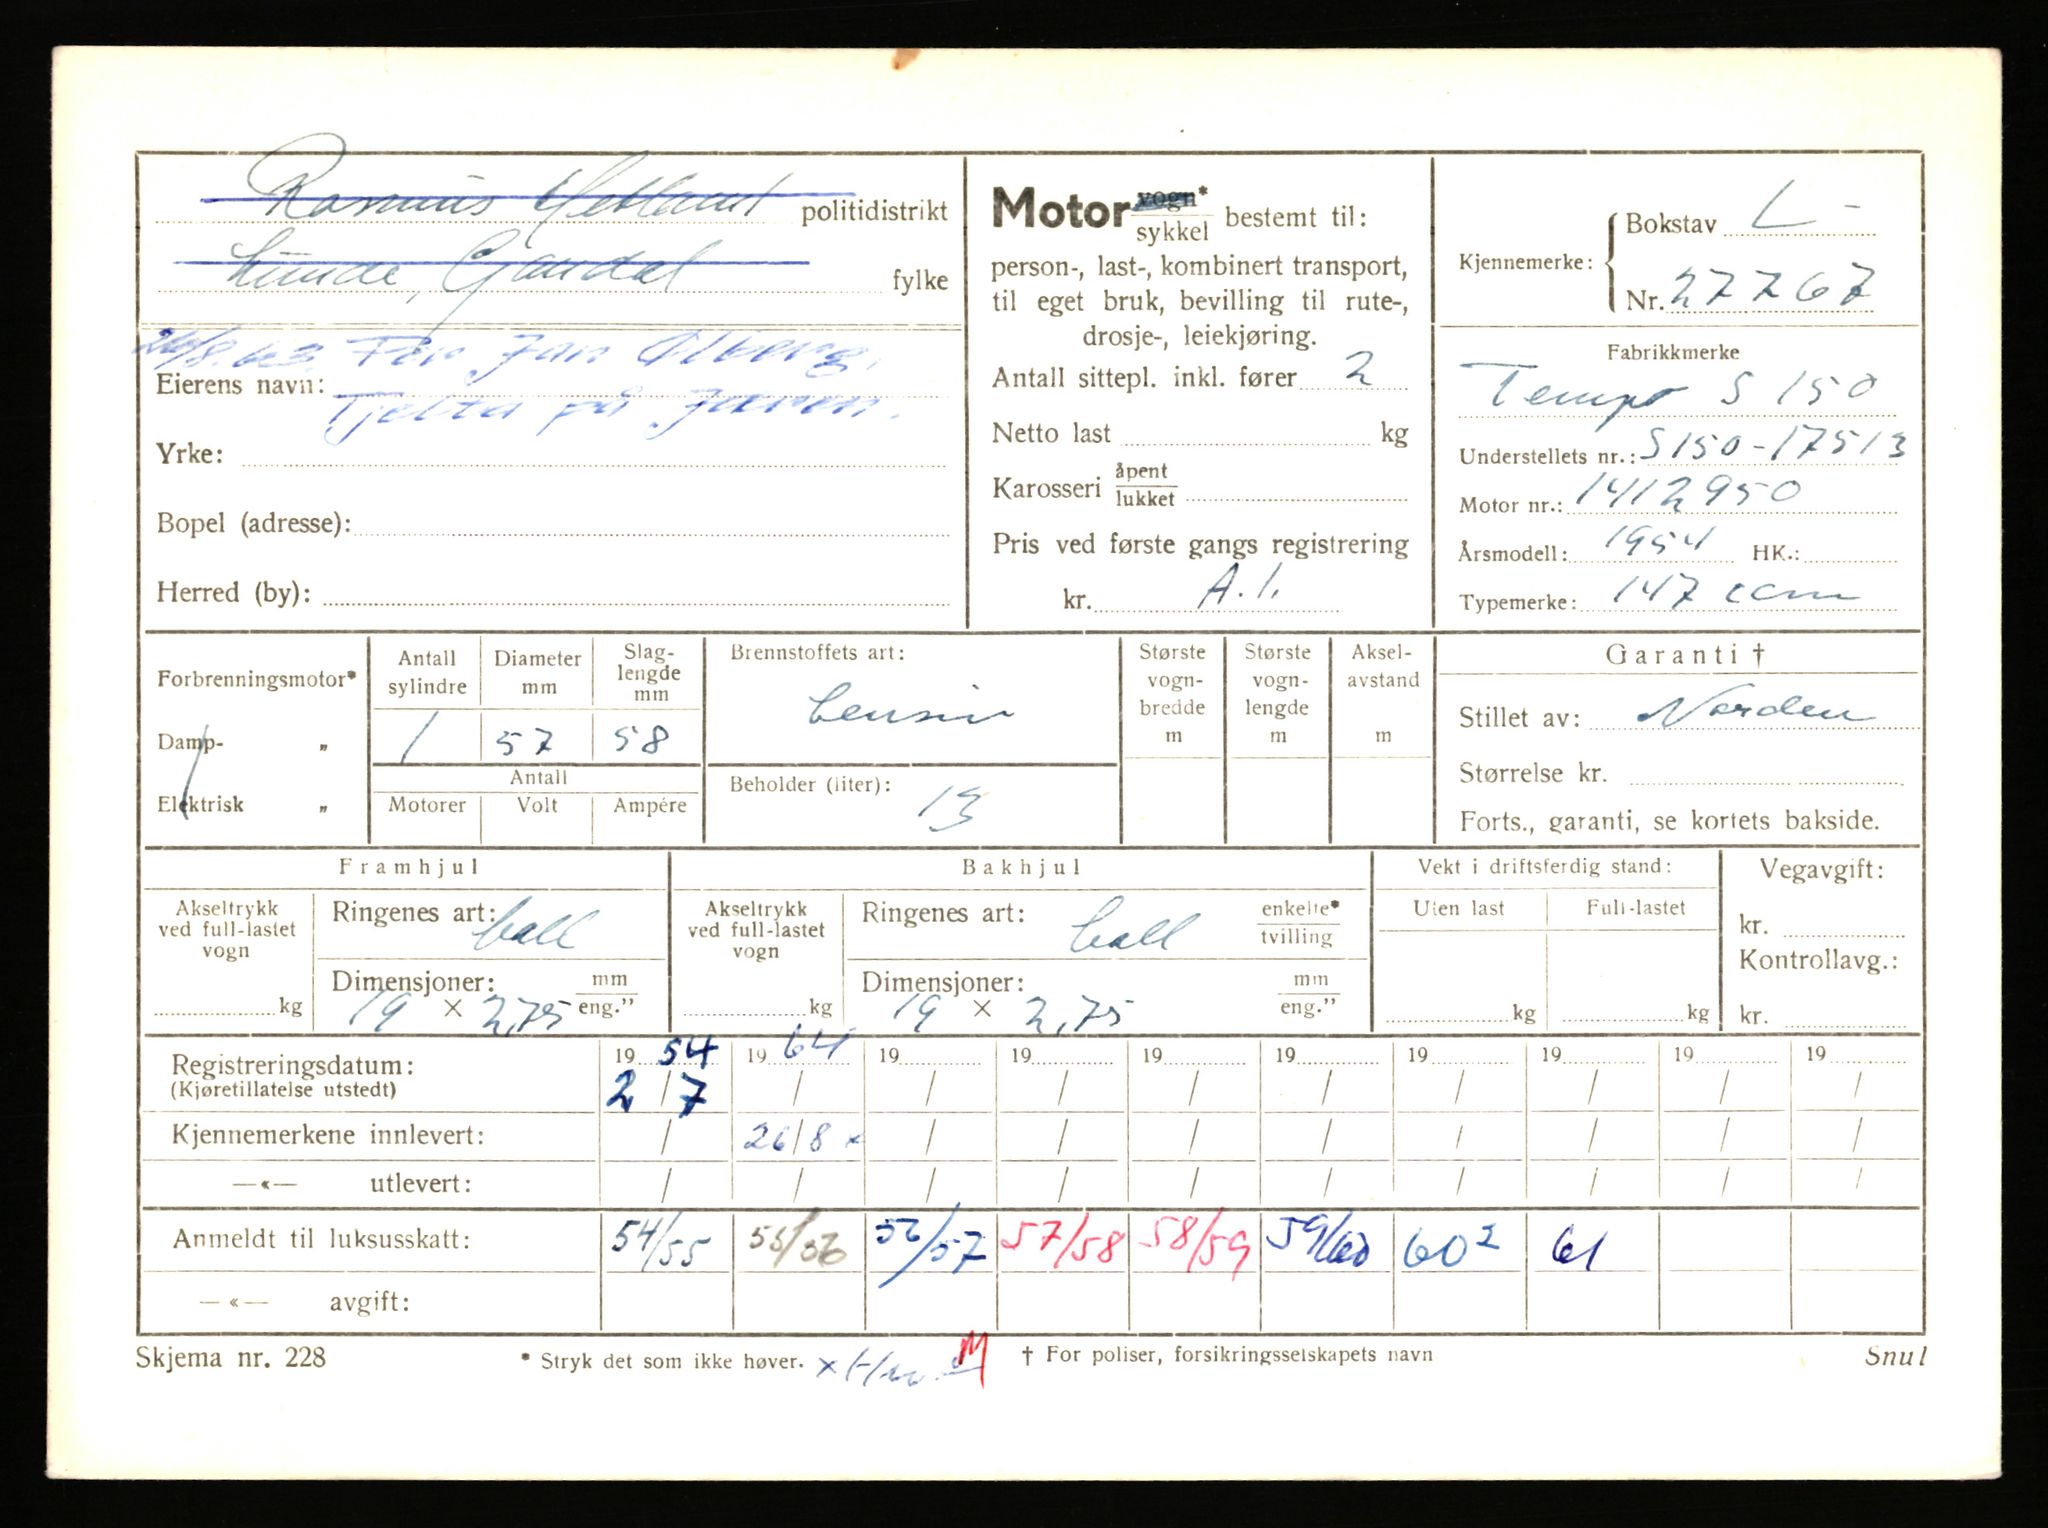 Rasmus Hetland politidistrikt
Lunde, Gandal fylke
26/8.63. Per Jan Alberg,
Eierens navn:
Tjelta på Jæren.
Yrke:
Bopel (adresse):
Herred (by):
Motor vogn* / sykkel bestemt til:
person-, last-, kombinert transport,
til eget bruk, bevilling til rute-,
drosje-, leiekjøring.
Antall sittepl. inkl. fører 2
Netto last kg
Karosseri åpent / lukket
Pris ved første gangs registrering
kr. A.I.
Kjennemerke: Bokstav L-
Nr. 27767
Fabrikkmerke
Tempo S 150
Understellets nr.: S150-17513
Motor nr.: 1412950
Årsmodell: 1954 HK.:
Typemerke: 147 ccm
Forbrenningsmotor*
Damp- „
Elektrisk „
Antall sylindre 1
Diameter mm 57
Slag-lengde mm 58
Antall
Motorer Volt Ampére
Brennstoffets art:
bensin
Beholder (liter):
13
Største vogn-bredde m
Største vogn-lengde m
Aksel-avstand m
Garanti †
Stillet av: Norden
Størrelse kr.
Forts., garanti, se kortets bakside.
Framhjul
Akseltrykk ved full-lastet vogn kg
Ringenes art: ball
Dimensjoner: mm / eng."
19 x 2,75
Bakhjul
Akseltrykk ved full-lastet vogn kg
Ringenes art: ball enkelte* / tvilling
Dimensjoner: mm / eng."
19 x 2,75
Vekt i driftsferdig stand:
Uten last Full-lastet
kg kg
Vegavgift:
kr.
Kontrollavg.:
kr.
Registreringsdatum: 19 54 19 64 19 19 19 19 19 19 19 19
(Kjøretillatelse utstedt) 2 / 7 / / / / / / / / /
Kjennemerkene innlevert: / 26/8 x / / / / / / / /
—«— utlevert: / / / / / / / / / /
Anmeldt til luksusskatt: 54/55 55/56 56/57 57/58 58/59 59/60 60² 61
—«— avgift:
Skjema nr. 228
* Stryk det som ikke høver.
† For poliser, forsikringsselskapets navn
Snul